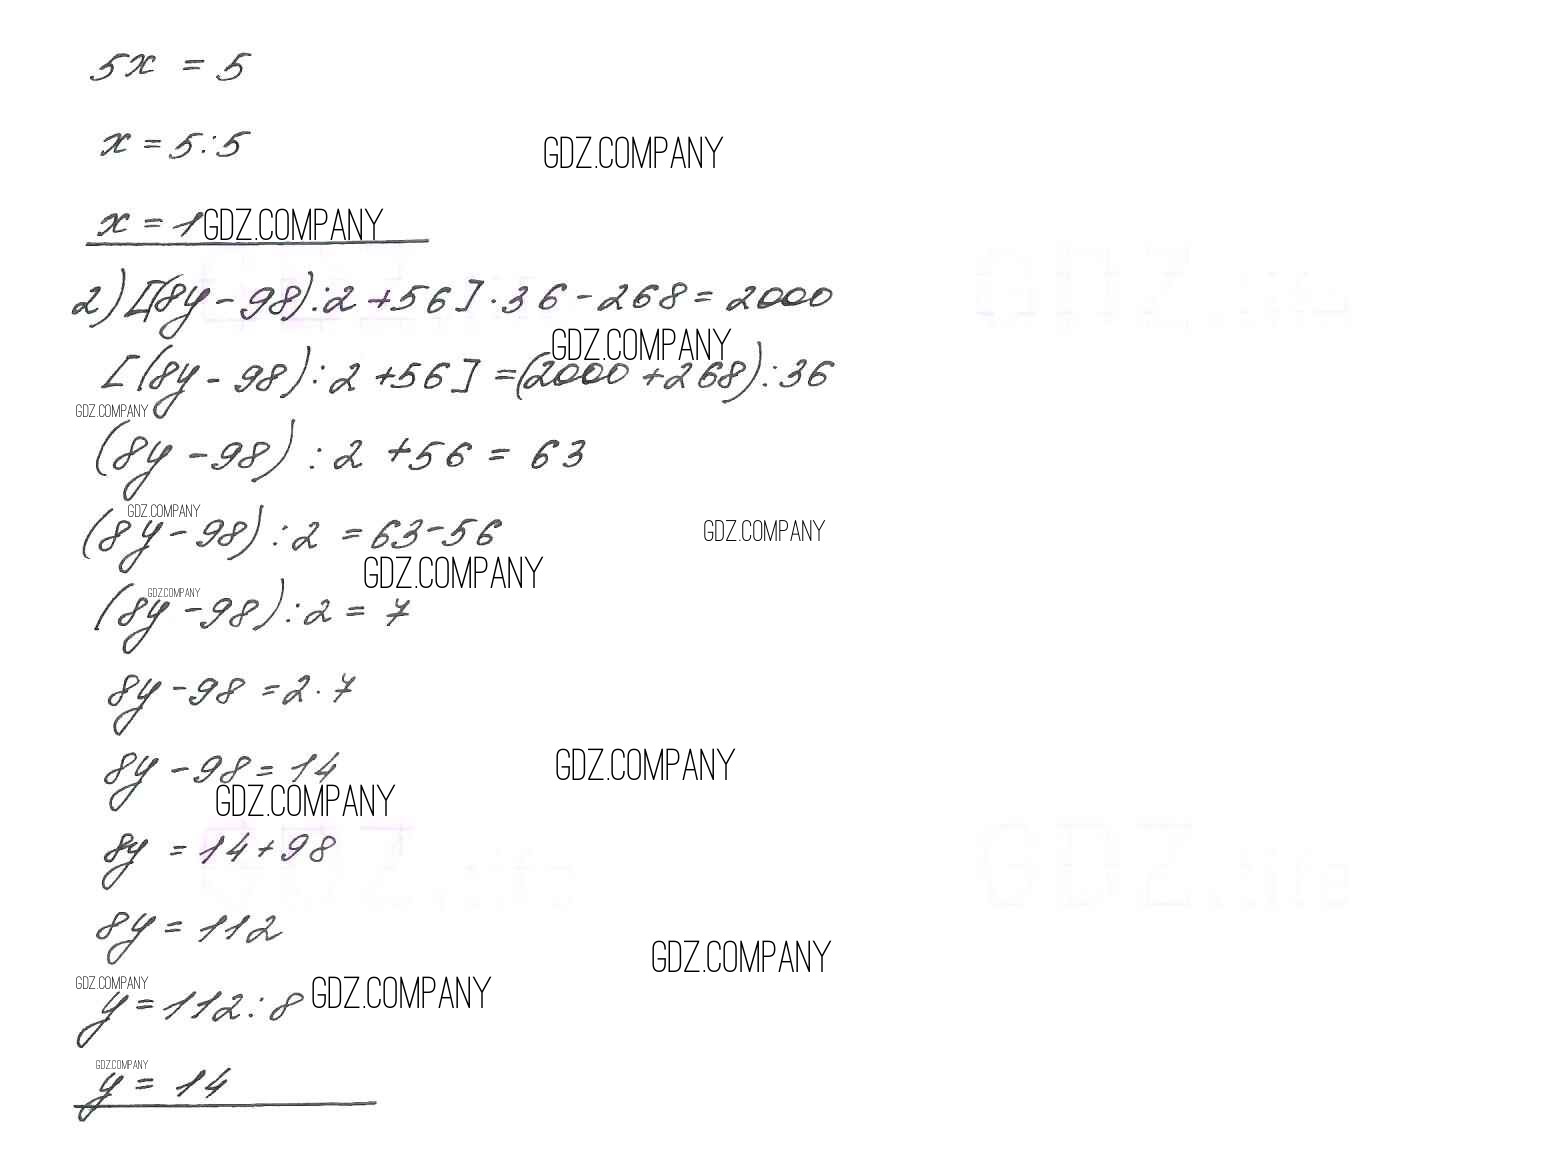 5x = 5
x = 5:5
GDZ.COMPANY
x = 1
GDZ.COMPANY
2) [(8y - 98):2 + 56] · 36 - 268 = 2000
GDZ.COMPANY
[(8y - 98):2 + 56] = (2000 + 268):36
GDZ.COMPANY
(8y - 98) : 2 + 56 = 63
GDZ.COMPANY
(8y - 98) : 2 = 63 - 56
GDZ.COMPANY
GDZ.COMPANY
GDZ.COMPANY
(8y - 98) : 2 = 7
8y - 98 = 2 · 7
8y - 98 = 14
GDZ.COMPANY
GDZ.COMPANY
8y = 14 + 98
8y = 112
GDZ.COMPANY
GDZ.COMPANY
y = 112 : 8
GDZ.COMPANY
GDZ.COMPANY
y = 14
GDZ.life
GDZ.life
GDZ.life
GDZ.life